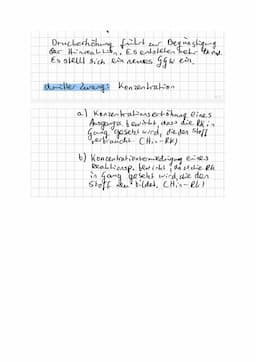 Druckerhöhung führt zur Begünstigung
der Hinreaktion. Es entstehen mehr
Es stellt sich ein neues GGW ein.
dritter Zwang: Konzentration
a.) Konzentrationserhöhung eines
Ausgangs. bewirkt, dass die Rk in
Gang gesetzt wird, die den Stoff
verbraucht. (Hin-Rk)
b) Konzentrationserniedrigung eines
Reaktionsp. bewirkt, dass die Rk
in Gang gesetzt wird, die den
Stoff bildet. (Hin-Rk)